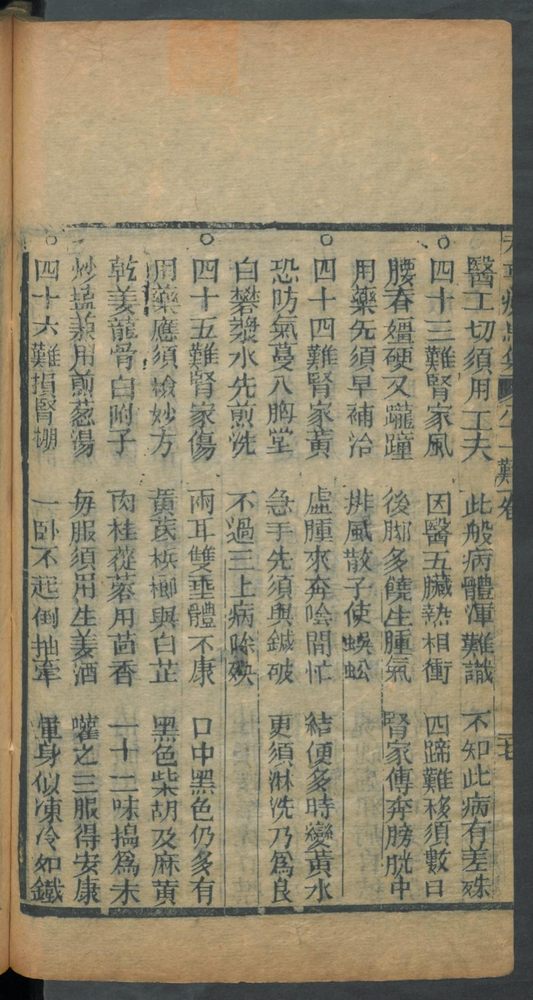 醫工切須用工夫 此般病體渾難識 不知此病有差殊
○四十三難腎家風 因醫五臟熱相衝 四蹄難移須數日
腰脊殭硬又𨇽蹱 後脚多饒生腫氣 腎家傳奔膀胱中
用藥先須早補治 排風散子使蜈蚣
○四十四難腎家黃 虛腫來奔陰間忙 結便多時變黃水
恐防氣蔓入胸堂 急手先須與鍼破 更須淋洗乃爲良
白礬漿水先煎洗 不過三上病除殃
○四十五難腎家傷 兩耳雙垂體不康 口中黑色仍多有
用藥應須檢妙方 黃芪梹榔與白芷 黑色柴胡及麻黃
乾姜龍骨白附子 肉桂蓯蓉用茴香 一十二味搗爲末
炒鹽兼用煎葱湯 每服須用生姜酒 嚾之三服得安康
○四十六難損腎棚 一卧不起倒抽牽 渾身似凍冷如鐵